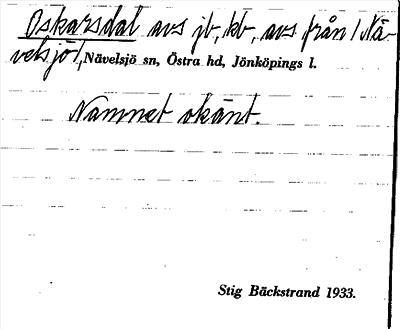 Oskarsdal avs jb, kb, avs från /Nä-
velsjö/, Nävelsjö sn, Östra hd, Jönköpings l.
Namnet okänt.
Stig Bäckstrand 1933.